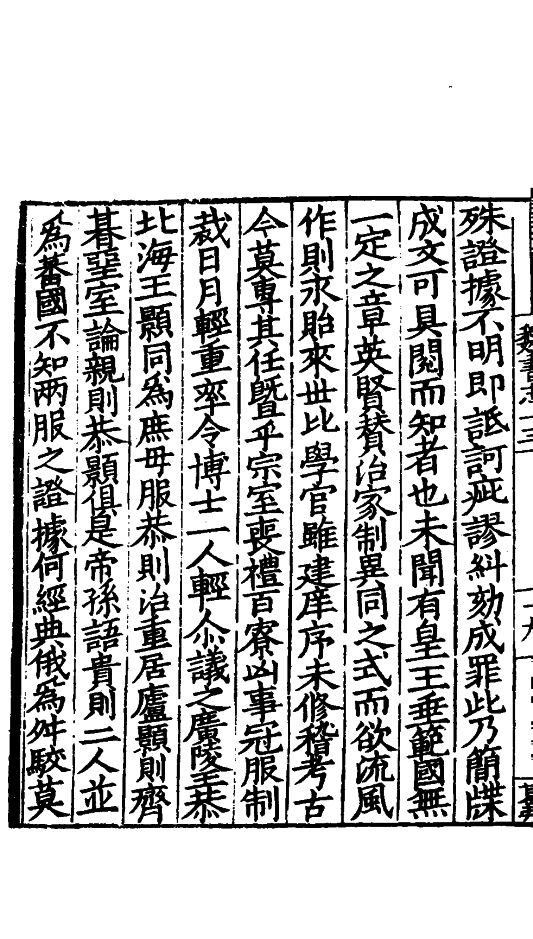 殊證據不明即詆訶疵謬糾劾成罪此乃簡牒
成文可具閱而知者也未聞有皇王垂範國無
一定之章英賢贊治家制異同之式而欲流風
作則永貽來世比學官雖建庠序未修稽考古
今莫專其任曁乎宗室喪禮百寮凶事冠服制
裁日月輕重率令博士一人輕尒議之廣陵王恭
北海王顥同爲庶母服恭則治重居廬顥則齊
朞堊室論親則恭顥俱是帝孫語貴則二人並
爲蕃國不知兩服之證據何經典俄爲舛駮莫